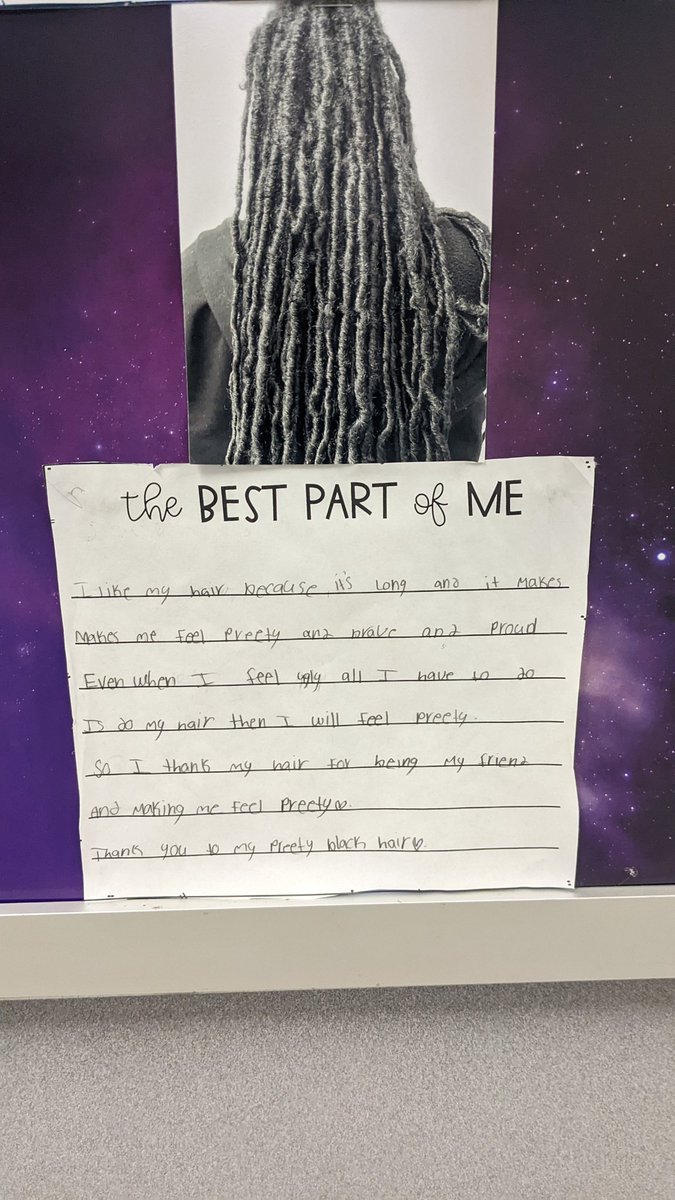 the BEST PART of ME
I like my hair because it's long and it makes
Makes me feel Preety and brave and Proud
Even when I feel ugly all I have to do
Is do my hair then I will feel preety.
So I thank my hair for being My friend
And Making me feel Preety♡.
Thank you to my Preety black hair♡.